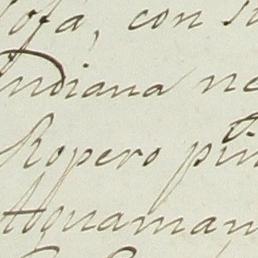 sofa, con su
Indiana ne
Ropero pin
Aguaman